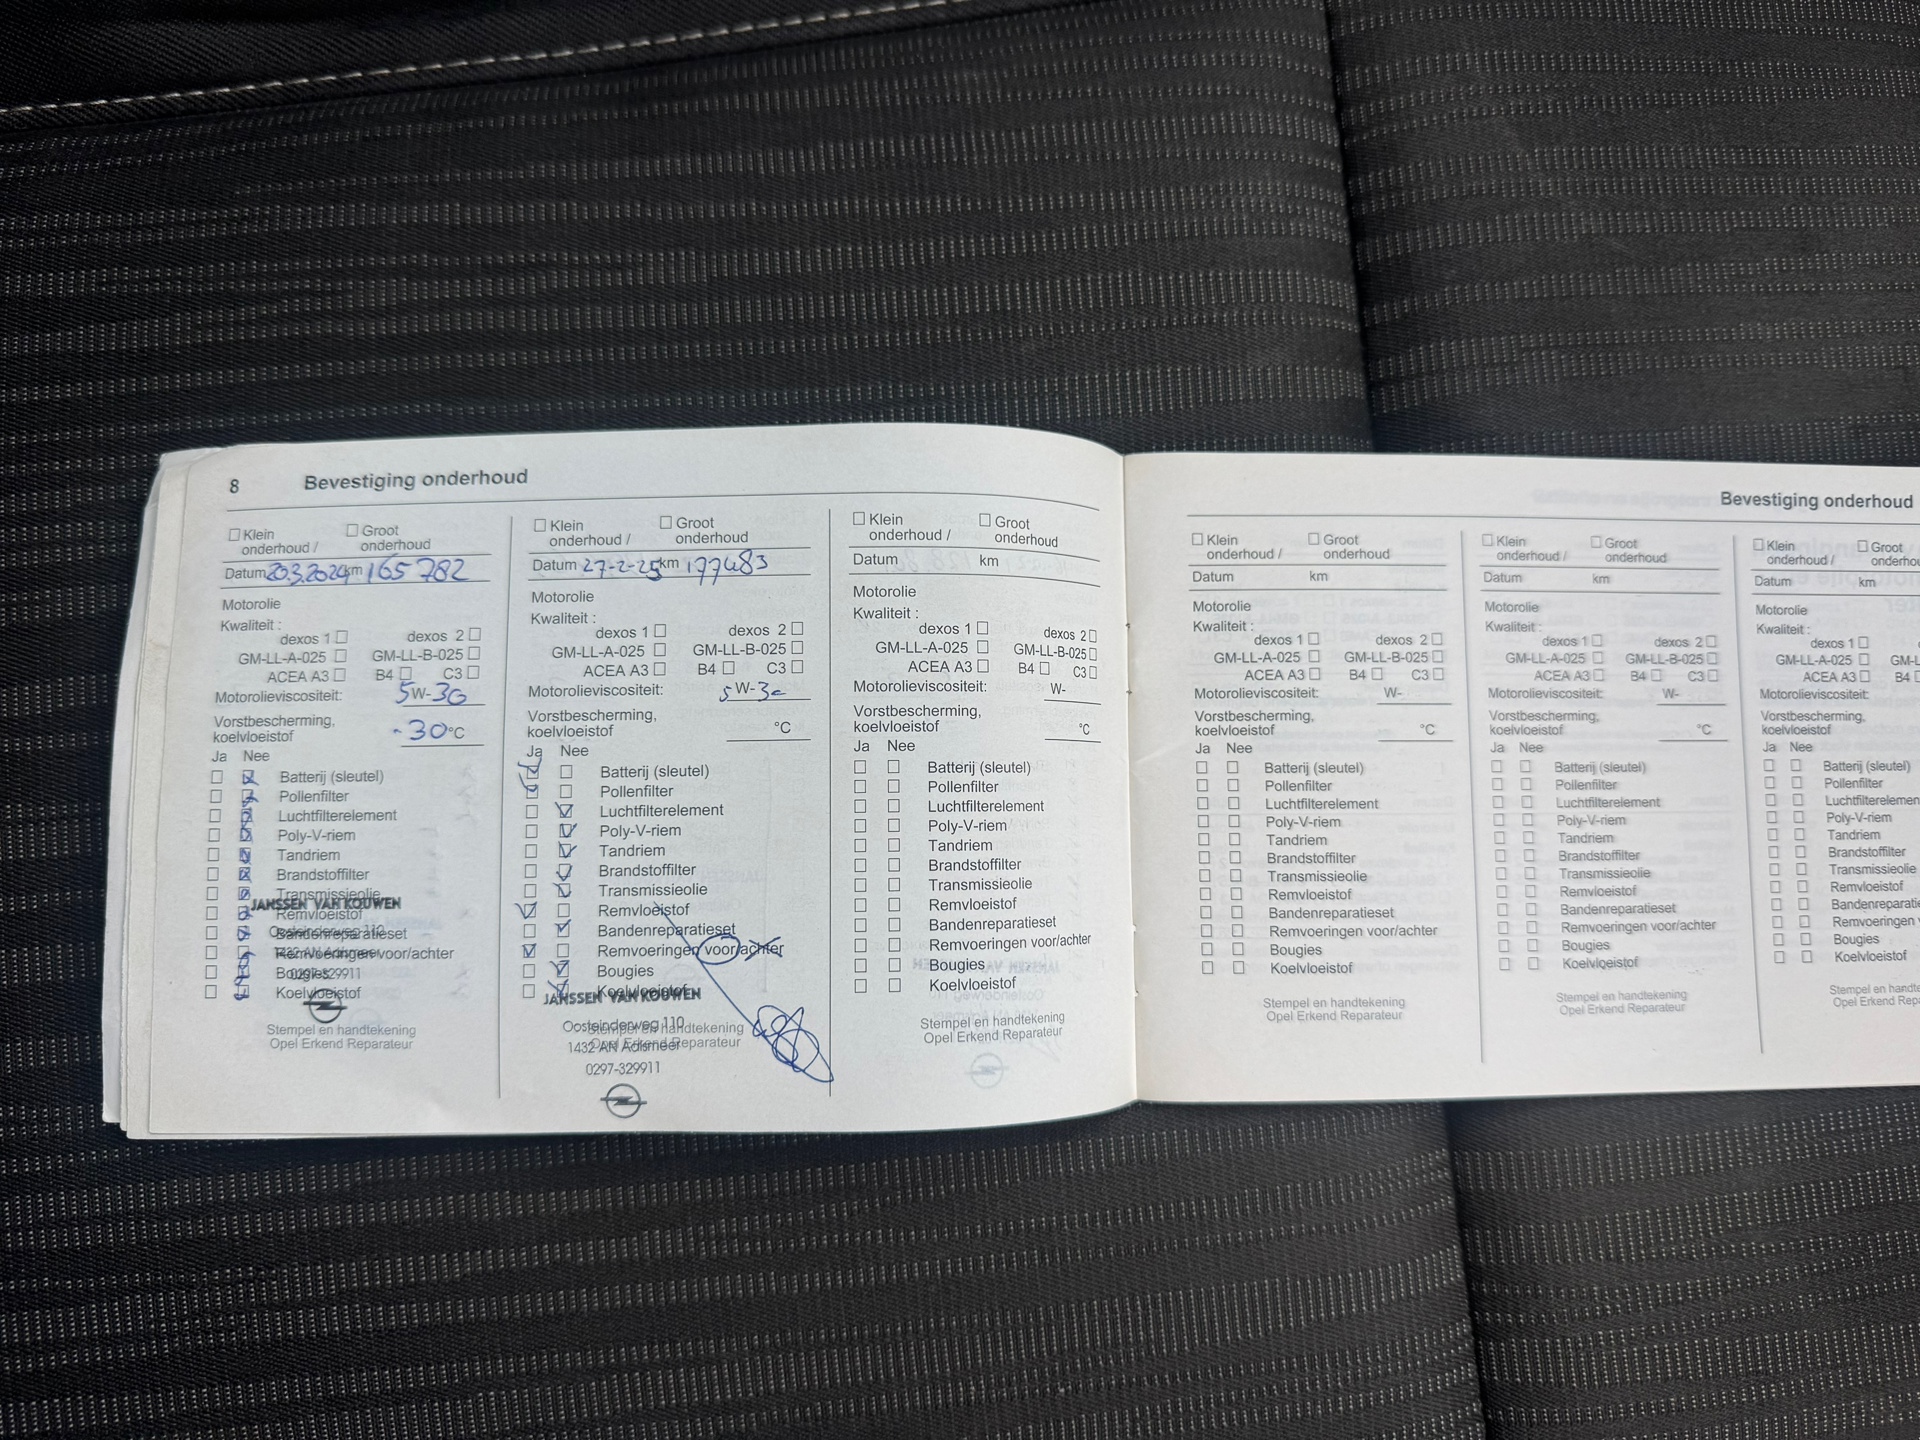 8 Bevestiging onderhoud
Klein onderhoud / Groot onderhoud
Datum 20.3.2024 km 165 782
Motorolie
Kwaliteit :
dexos 1 dexos 2
GM-LL-A-025 GM-LL-B-025
ACEA A3 B4 C3
Motorolieviscositeit: 5W-30
Vorstbescherming,
koelvloeistof -30 °C
Ja Nee
Batterij (sleutel)
Pollenfilter
Luchtfilterelement
Poly-V-riem
Tandriem
Brandstoffilter
Transmissieolie
JANSSEN VAN KOUWEN
Remvloeistof
Oosteinderweg 110
Bandenreparatieset
Remvoeringen voor/achter
0297-329911
Bougies
Koelvloeistof
Stempel en handtekening
Opel Erkend Reparateur
Klein onderhoud / Groot onderhoud
Datum 27-2-25 km 177483
Motorolie
Kwaliteit :
dexos 1 dexos 2
GM-LL-A-025 GM-LL-B-025
ACEA A3 B4 C3
Motorolieviscositeit: 5W-30
Vorstbescherming,
koelvloeistof °C
Ja Nee
Batterij (sleutel)
Pollenfilter
Luchtfilterelement
Poly-V-riem
Tandriem
Brandstoffilter
Transmissieolie
Remvloeistof
Bandenreparatieset
Remvoeringen voor/achter
Bougies
Koelvloeistof
JANSSEN VAN KOUWEN
Oosteinderweg 110
Stempel en handtekening
1432 AN Aalsmeer
Opel Erkend Reparateur
0297-329911
Klein onderhoud / Groot onderhoud
Datum km
Motorolie
Kwaliteit :
dexos 1 dexos 2
GM-LL-A-025 GM-LL-B-025
ACEA A3 B4 C3
Motorolieviscositeit: W-
Vorstbescherming,
koelvloeistof °C
Ja Nee
Batterij (sleutel)
Pollenfilter
Luchtfilterelement
Poly-V-riem
Tandriem
Brandstoffilter
Transmissieolie
Remvloeistof
Bandenreparatieset
Remvoeringen voor/achter
Bougies
Koelvloeistof
Stempel en handtekening
Opel Erkend Reparateur
Bevestiging onderhoud
Klein onderhoud / Groot onderhoud
Datum km
Motorolie
Kwaliteit :
dexos 1 dexos 2
GM-LL-A-025 GM-LL-B-025
ACEA A3 B4 C3
Motorolieviscositeit: W-
Vorstbescherming,
koelvloeistof °C
Ja Nee
Batterij (sleutel)
Pollenfilter
Luchtfilterelement
Poly-V-riem
Tandriem
Brandstoffilter
Transmissieolie
Remvloeistof
Bandenreparatieset
Remvoeringen voor/achter
Bougies
Koelvloeistof
Stempel en handtekening
Opel Erkend Reparateur
Klein onderhoud / Groot onderhoud
Datum km
Motorolie
Kwaliteit :
dexos 1 dexos 2
GM-LL-A-025 GM-LL-B-025
ACEA A3 B4 C3
Motorolieviscositeit: W-
Vorstbescherming,
koelvloeistof °C
Ja Nee
Batterij (sleutel)
Pollenfilter
Luchtfilterelement
Poly-V-riem
Tandriem
Brandstoffilter
Transmissieolie
Remvloeistof
Bandenreparatieset
Remvoeringen voor/achter
Bougies
Koelvloeistof
Stempel en handtekening
Opel Erkend Reparateur
Klein onderhoud / Groot onderhoud
Datum km
Motorolie
Kwaliteit :
dexos 1
GM-LL-A-025 GM-L
ACEA A3 B4
Motorolieviscositeit:
Vorstbescherming,
koelvloeistof
Ja Nee
Batterij (sleutel)
Pollenfilter
Luchtfilterelemen
Poly-V-riem
Tandriem
Brandstoffilter
Transmissieolie
Remvloeistof
Bandenreparatie
Remvoeringen v
Bougies
Koelvloeistof
Stempel en handtekening
Opel Erkend Reparateur